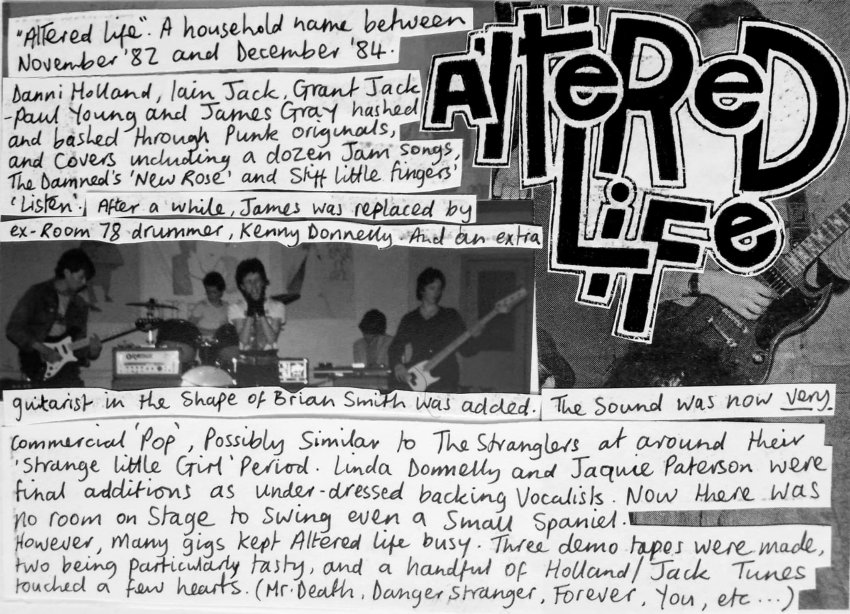 "Altered life". A household name between
November '82 and December '84.
ALTeReD
LiFe
Danni Holland, Iain Jack, Grant Jack
-Paul Young and James Gray hashed
and bashed through Punk originals,
and Covers including a dozen Jam songs,
The Damned's 'New Rose' and Stiff little fingers'
'Listen'. After a while, James was replaced by
ex-Room 78 drummer, Kenny Donnelly. And an extra
ORANGE
guitarist in the Shape of Brian Smith was added. The Sound was now very
Commercial 'Pop', Possibly Similar to The Stranglers at around their
'Strange little Girl' Period. Linda Donnelly and Jaquie Paterson were
final additions as under-dressed backing Vocalists. Now there was
no room on Stage to Swing even a Small Spaniel.
However, many gigs kept Altered life busy. Three demo tapes were made,
two being particularly tasty, and a handful of Holland/Jack Tunes
touched a few hearts. (Mr. Death, Danger Stranger, Forever, You, etc...)